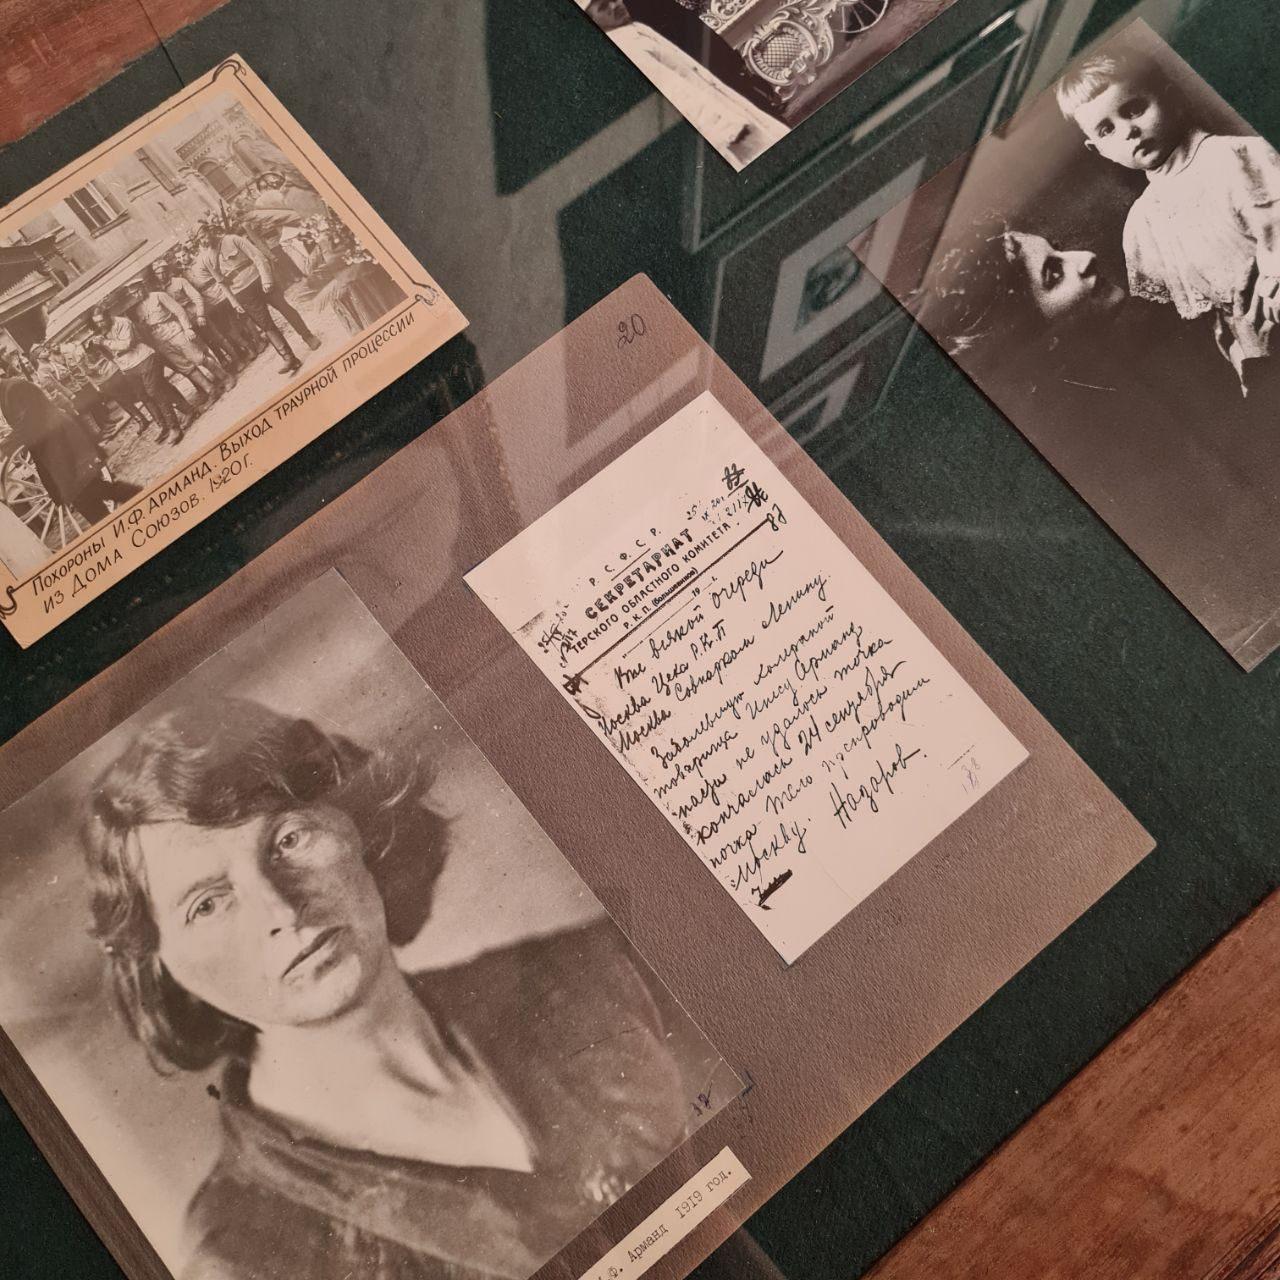 Похороны И.Ф. Арманд. Выход траурной процессии
из Дома Союзов. 1920г.
20
Р. С. Ф. С. Р.
СЕКРЕТАРИАТ
ТЕРСКОГО ОБЛАСТНОГО КОМИТЕТА
Р. К. П. (большевиков)
19
87
Вне всякой очереди
Москва Цека Р.К.П
Москва Совнарком Ленину
Заболевшую холерой
товарища Инесу Арманд
не удалось точка
кончалась 24 сентября
точка тело препроводим
Москву. Назаров.
Ф. Арманд 1919 год.